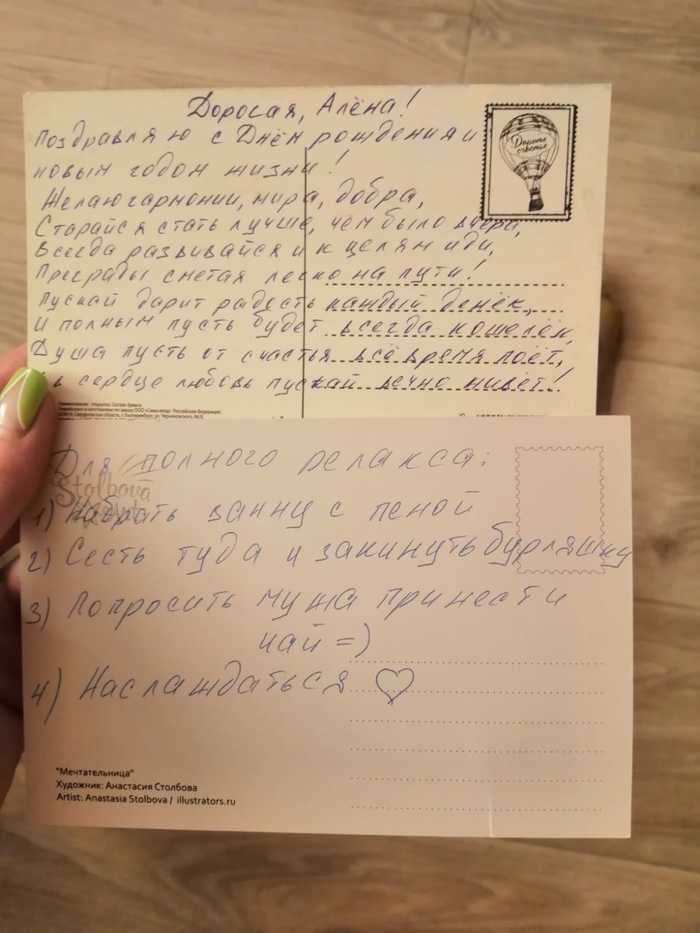 Дорогая, Алёна!
Поздравляю с Днём рождения и
новым годом жизни!
Желаю гармонии, мира, добра,
Старайся стать лучше, чем было вчера,
Всегда развивайся и к целям иди,
Преграды сметая легко на пути!
Пускай дарит радость каждый денёк,
И полным пусть будет всегда кошелёк,
Душа пусть от счастья всё время поёт,
И в сердце любовь пускай вечно живёт!
Для полного релакса:
Stolbova
1) Набрать ванну с пеной
2) Сесть туда и закинуть бурляшку
3) Попросить мужа принести
чай =)
4) Наслаждаться
"Мечтательница"
Художник: Анастасия Столбова
Artist: Anastasia Stolbova / illustrators.ru